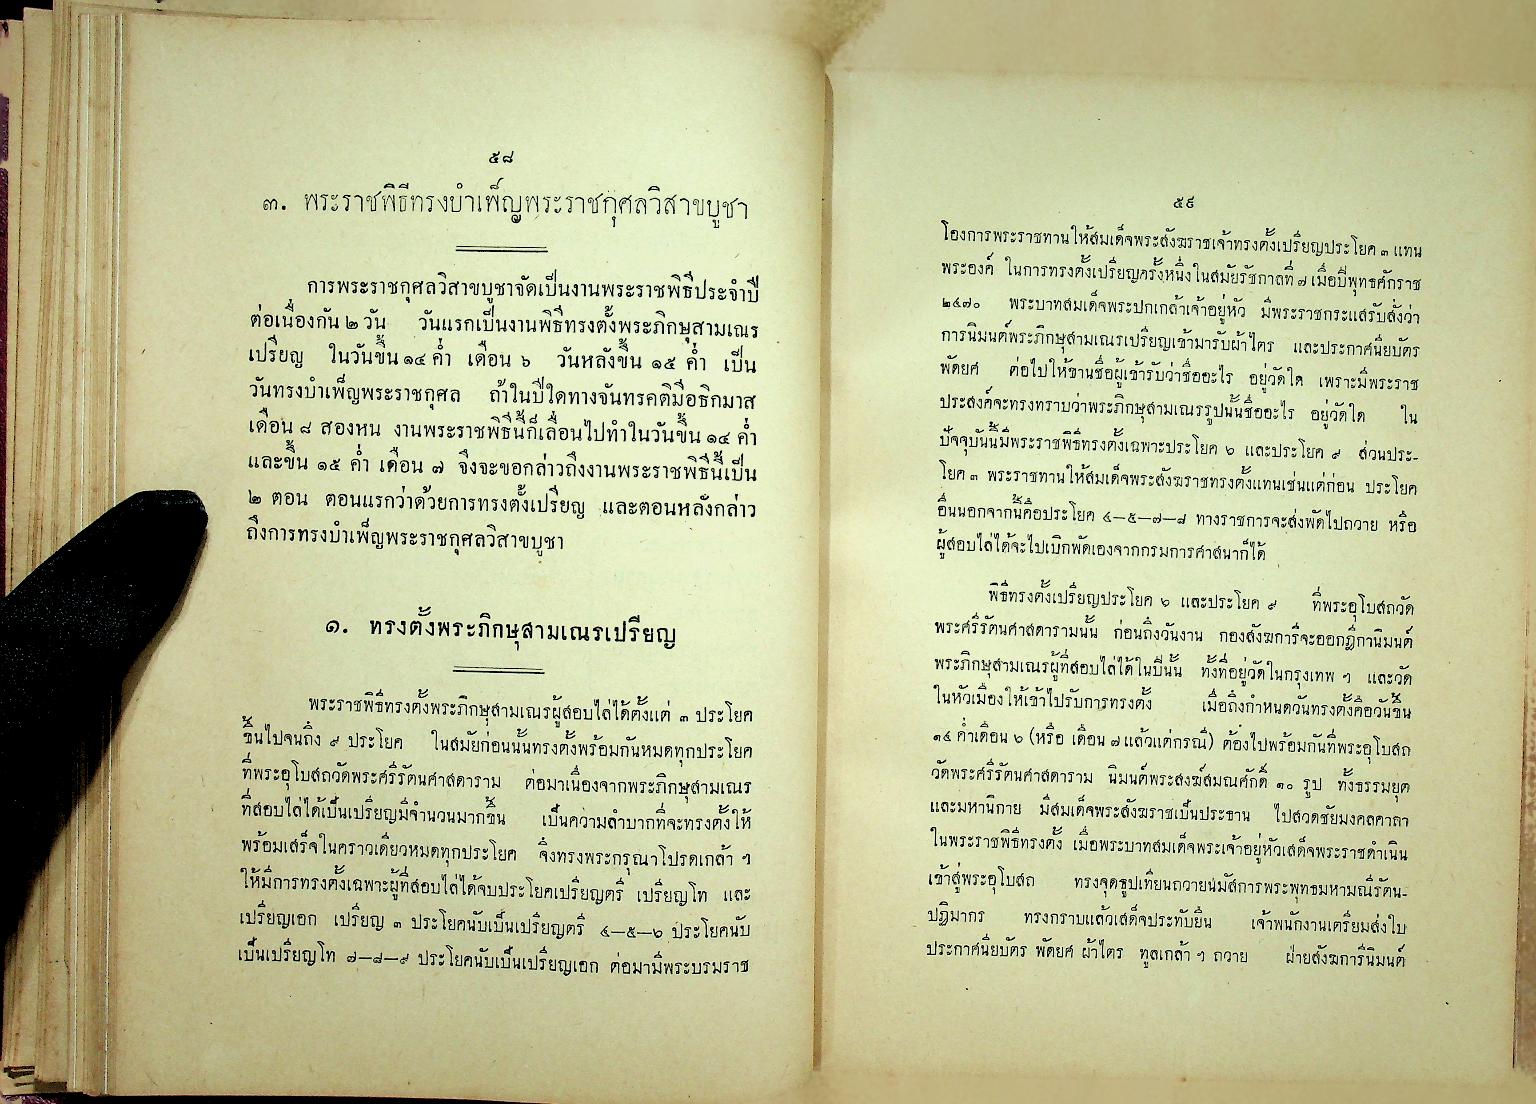 ๕๘
๓. พระราชพิธีทรงบำเพ็ญพระราชกุศลวิสาขบูชา
การพระราชกุศลวิสาขบูชาจัดเป็นงานพระราชพิธีประจำปี
ต่อเนื่องกัน ๒ วัน วันแรกเป็นงานพิธีทรงตั้งพระภิกษุสามเณร
เปรียญ ในวันขึ้น ๑๔ ค่ำ เดือน ๖ วันหลังขึ้น ๑๕ ค่ำ เป็น
วันทรงบำเพ็ญพระราชกุศล ถ้าในปีใดทางจันทรคติมีอธิกมาส
เดือน ๘ สองหน งานพระราชพิธีนี้ก็เลื่อนไปทำในวันขึ้น ๑๔ ค่ำ
และขึ้น ๑๕ ค่ำ เดือน ๗ จึงจะขอกล่าวถึงงานพระราชพิธีนี้เป็น
๒ ตอน ตอนแรกว่าด้วยการทรงตั้งเปรียญ และตอนหลังกล่าว
ถึงการทรงบำเพ็ญพระราชกุศลวิสาขบูชา
๑. ทรงตั้งพระภิกษุสามเณรเปรียญ
พระราชพิธีทรงตั้งพระภิกษุสามเณรผู้สอบไล่ได้ตั้งแต่ ๓ ประโยค
ขึ้นไปจนถึง ๙ ประโยค ในสมัยก่อนนั้นทรงตั้งพร้อมกันหมดทุกประโยค
ที่พระอุโบสถวัดพระศรีรัตนศาสดาราม ต่อมาเนื่องจากพระภิกษุสามเณร
ที่สอบไล่ได้เป็นเปรียญมีจำนวนมากขึ้น เป็นความลำบากที่จะทรงตั้งให้
พร้อมเสร็จในคราวเดียวหมดทุกประโยค จึงทรงพระกรุณาโปรดเกล้า ฯ
ให้มีการทรงตั้งเฉพาะผู้ที่สอบไล่ได้จบประโยคเปรียญตรี เปรียญโท และ
เปรียญเอก เปรียญ ๓ ประโยคนับเป็นเปรียญตรี ๔—๕—๖ ประโยคนับ
เป็นเปรียญโท ๗—๘—๙ ประโยคนับเป็นเปรียญเอก ต่อมามีพระบรมราช
๕๙
โองการพระราชทานให้สมเด็จพระสังฆราชเจ้าทรงตั้งเปรียญประโยค ๓ แทน
พระองค์ ในการทรงตั้งเปรียญครั้งหนึ่งในสมัยรัชกาลที่ ๗ เมื่อปีพุทธศักราช
๒๔๗๐ พระบาทสมเด็จพระปกเกล้าเจ้าอยู่หัว มีพระราชกระแสรับสั่งว่า
การนิมนต์พระภิกษุสามเณรเปรียญเข้ามารับผ้าไตร และประกาศนียบัตร
พัดยศ ต่อไปให้ขานชื่อผู้เข้ารับว่าชื่ออะไร อยู่วัดใด เพราะมีพระราช
ประสงค์จะทรงทราบว่าพระภิกษุสามเณรรูปนั้นชื่ออะไร อยู่วัดใด ใน
ปัจจุบันนี้มีพระราชพิธีทรงตั้งเฉพาะประโยค ๖ และประโยค ๙ ส่วนประ-
โยค ๓ พระราชทานให้สมเด็จพระสังฆราชทรงตั้งแทนเช่นแต่ก่อน ประโยค
อื่นนอกจากนี้คือประโยค ๔—๕—๗—๘ ทางราชการจะส่งพัดไปถวาย หรือ
ผู้สอบไล่ได้จะไปเบิกพัดเองจากกรมการศาสนาก็ได้
พิธีทรงตั้งเปรียญประโยค ๖ และประโยค ๙ ที่พระอุโบสถวัด
พระศรีรัตนศาสดารามนั้น ก่อนถึงวันงาน กองสังฆการีจะออกฎีกานิมนต์
พระภิกษุสามเณรผู้ที่สอบไล่ได้ในปีนั้น ทั้งที่อยู่วัดในกรุงเทพ ฯ และวัด
ในหัวเมืองให้เข้าไปรับการทรงตั้ง เมื่อถึงกำหนดวันทรงตั้งคือวันขึ้น
๑๔ ค่ำเดือน ๖ (หรือ เดือน ๗ แล้วแต่กรณี) ต้องไปพร้อมกันที่พระอุโบสถ
วัดพระศรีรัตนศาสดาราม นิมนต์พระสงฆ์สมณศักดิ์ ๑๐ รูป ทั้งธรรมยุต
และมหานิกาย มีสมเด็จพระสังฆราชเป็นประธาน ไปสวดชัยมงคลคาถา
ในพระราชพิธีทรงตั้ง เมื่อพระบาทสมเด็จพระเจ้าอยู่หัวเสด็จพระราชดำเนิน
เข้าสู่พระอุโบสถ ทรงจุดธูปเทียนถวายนมัสการพระพุทธมหามณีรัตน-
ปฏิมากร ทรงกราบแล้วเสด็จประทับยืน เจ้าพนักงานเตรียมส่งใบ
ประกาศนียบัตร พัดยศ ผ้าไตร ทูลเกล้า ฯ ถวาย ฝ่ายสังฆการีนิมนต์